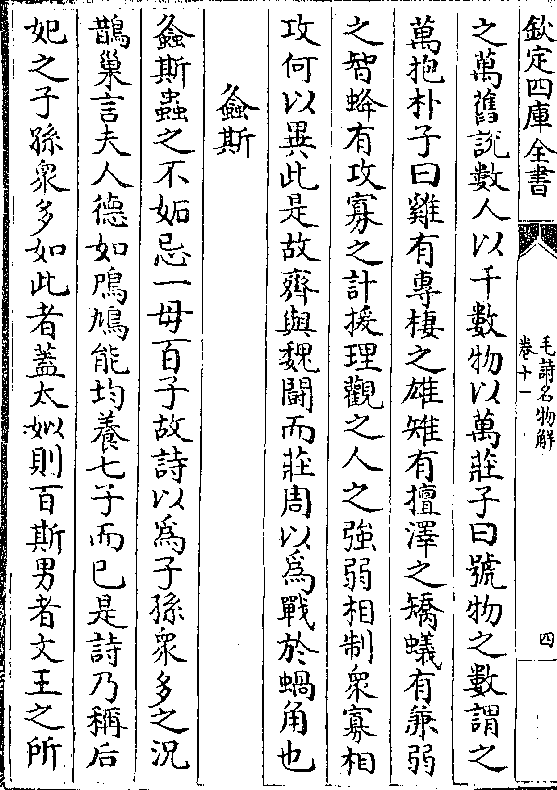 欽定四庫全書
毛詩名物解
卷十一
四
之萬舊説數人以千數物以萬莊子曰號物之數謂之
萬抱朴子曰雞有專棲之雄雉有擅澤之矯蟻有兼弱
之智蜂有攻寡之計援理觀之人之強弱相制衆寡相
攻何以異此是故齊與魏鬭而莊周以為戰於蝸角也
螽斯
螽斯蟲之不妬忌一母百子故詩以為子孫衆多之況
鵲巢言夫人德如鳲鳩能均養七子而已是詩乃稱后
妃之子孫衆多如此者蓋太姒則百斯男者文王之所